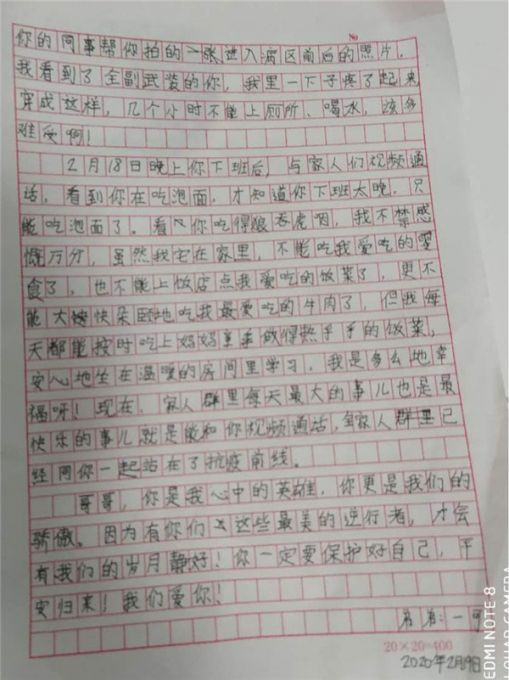 你的同事帮你拍的一张进入病区前后的照片,
我看到了全副武装的你,我里一下子疼了起来,
穿成这样,几个小时不能上厕所、喝水,该多
难受啊!
2月18日晚上你下班后,与家人们视频通
话,看到你在吃泡面,才知道你下班太晚,只
能吃泡面了。看你吃得狼吞虎咽,我不禁感
慨万分,虽然我宅在家里,不能吃我爱吃的零
食了,也不能上饭店点我爱吃的饭菜了,更不
能大快朵颐地吃我最爱吃的牛肉了,但我每
天都能按时吃上妈妈做得热乎乎的饭菜,
安心地坐在温暖的房间里学习,我是多么地幸
福呀!现在,家人群里每天最大的事儿也是最
快乐的事儿就是能和你视频通话,全家人群里已
经同你一起站在了抗疫前线。
哥哥,你是我心中的英雄,你更是我们的
骄傲。因为有你们这些最美的逆行者,才会
有我们的岁月静好!你一定要保护好自己,平
安归来!我们爱你!
弟弟:一
20×20=400
2020年2月19日
EDMI NOTE 8